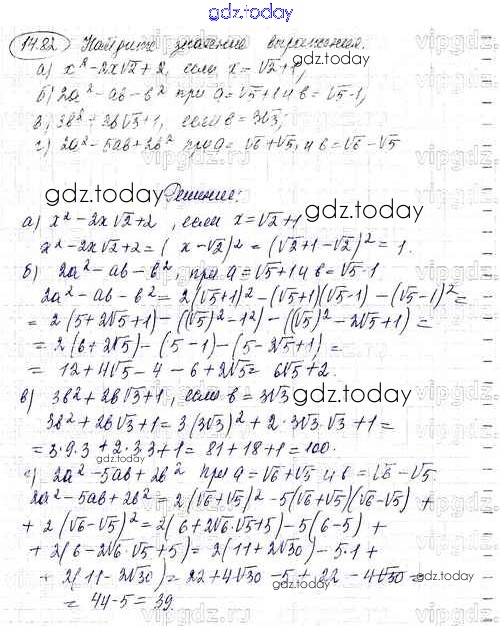 gdz.today
14.82) Найдите значение выражения.
а) x² - 2x√2 + 2, если x = √2 + 1,
б) 2a² - ab - b² при a = √5 + 1 и b = √5 - 1,
в) 3b² + 2b√3 + 1, если b = 3√3;
г) 2a² - 5ab + 2b² при a = √6 + √5, и b = √6 - √5
gdz.today
Решение:
gdz.today
а) x² - 2x√2 + 2, если x = √2 + 1
x² - 2x√2 + 2 = (x - √2)² = (√2 + 1 - √2)² = 1.
б) 2a² - ab - b², при a = √5 + 1 и b = √5 - 1
2a² - ab - b² = 2(√5+1)² - (√5+1)(√5-1) - (√5-1)² =
= 2(5 + 2√5 + 1) - ((√5)² - 1²) - ((√5)² - 2√5 + 1) =
= 2(6 + 2√5) - (5 - 1) - (5 - 2√5 + 1) =
= 12 + 4√5 - 4 - 6 + 2√5 = 6√5 + 2.
в) 3b² + 2b√3 + 1, если b = 3√3
gdz.today
3b² + 2b√3 + 1 = 3(3√3)² + 2·3√3·√3 + 1 =
= 3·9·3 + 2·3·3 + 1 = 81 + 18 + 1 = 100.
г) 2a² - 5ab + 2b² при a = √6 + √5 и b = √6 - √5.
2a² - 5ab + 2b² = 2(√6 + √5)² - 5(√6 + √5)(√6 - √5) +
+ 2(√6 - √5)² = 2(6 + 2√6·√5 + 5) - 5(6 - 5) +
+ 2(6 - 2√6·√5 + 5) = 2(11 + 2√30) - 5·1 +
+ 2(11 - 2√30) = 22 + 4√30 - 5 + 22 - 4√30 =
= 44 - 5 = 39.
gdz.today